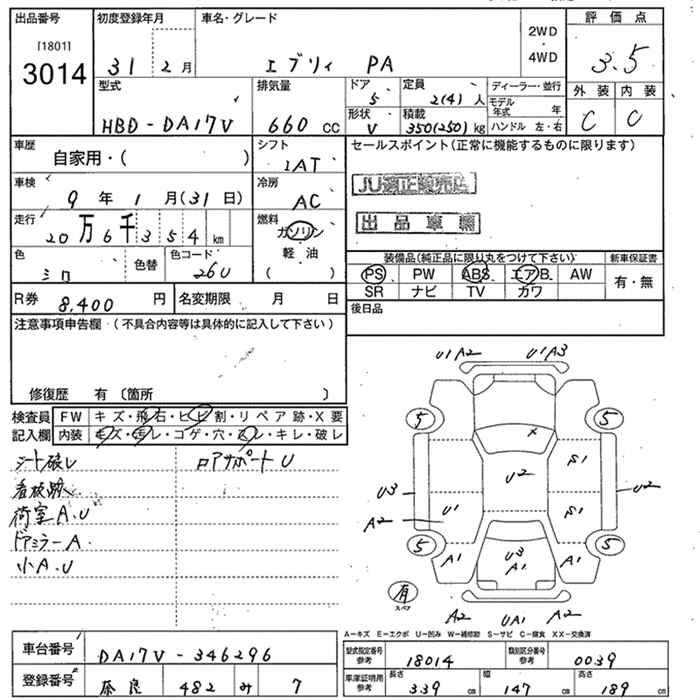 出品番号 [1801] 3014
初度登録年月 31 2月
車名・グレード エブリィ PA
2WD・4WD
評価点 3.5
型式 HBD-DA17V
排気量 660 cc
ドア 5
形状 V
定員 2(4)人
積載 350(250)kg
ディーラー・並行
モデル年式 年
ハンドル 左・右
外装 C
内装 C
車歴 自家用・( )
シフト 1AT
セールスポイント(正常に機能するものに限ります)
JU適正販売店
出品車輌
車検 9年1月(31日)
冷房 AC
走行 20万6千354km
燃料 ガソリン 軽油 ( )
色 シロ
色替
色コード 26U
装備品(純正品に限り丸をつけて下さい)
PS PW ABS エアB. AW
SR ナビ TV カワ
新車保証書 有・無
R券 8,400円
名変期限 月 日
後日品
注意事項申告欄・(不具合内容等は具体的に記入して下さい)
修復歴 有〔箇所 〕
検査員記入欄
FW キズ・飛石・ヒビ割・リペア跡・X要
内装 キズ・汚レ・コゲ・穴・スレ・キレ・破レ
シート破レ ロアサポートU
看板跡
荷室A.U
ドアミラーA.
小A.U
U1A2 U1A3
5 5
x
U2 S1
U3 U2
A2 U1 S1
5 5
A1 U3 A1 A1
有 スペア
A2 UA1 A2
A-キズ E-エクボ U-凹み W-補修跡 S-サビ C-腐食 XX-交換済
車台番号 DA17V-346296
登録番号 奈良 482 み 7
型式指定番号 参考 18014
類別区分番号 参考 0039
車庫証明用 参考 長さ 339cm 幅 147cm 高さ 189cm